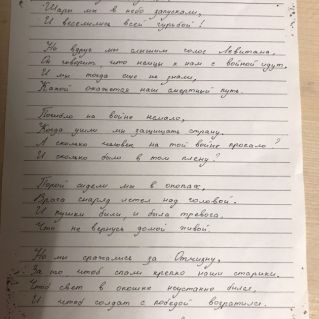 Шары мы в небо запускали,
И веселились всей гурьбой!
Но вдруг мы слышим голос Левитана,
Он говорит, что немцы к нам с войной идут,
И мы тогда еще не знали,
Какой окажется наш смертный путь.
Погибло на войне немало,
Когда ушли мы защищать страну,
А сколько человек на той войне пропало?
И сколько было в том плену?
Порой сидели мы в окопах,
Врага снаряд летел над головой.
И пушки били, и была тревога,
Что не вернусь домой живой.
Но мы сражались за Отчизну,
За то чтоб спали крепко наши старики,
Чтоб свет в окошке неустанно бился,
И чтоб солдат с победой возвратился.